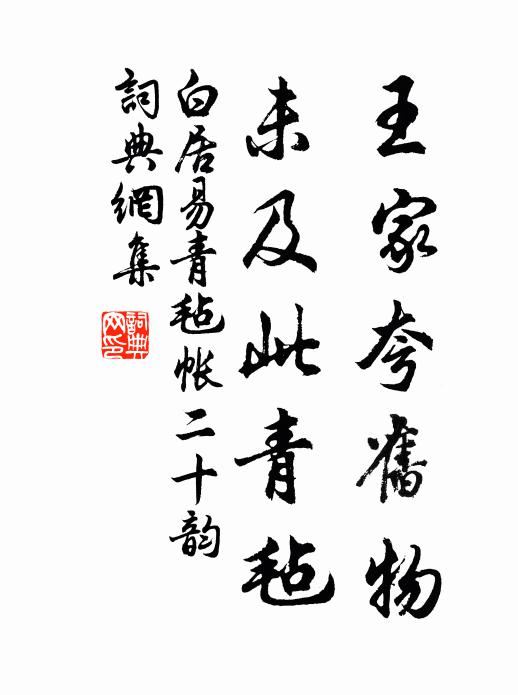 王家夸舊物
未及此青毡
白居易青毡帐二十韵
詞典網集
詞典
网印